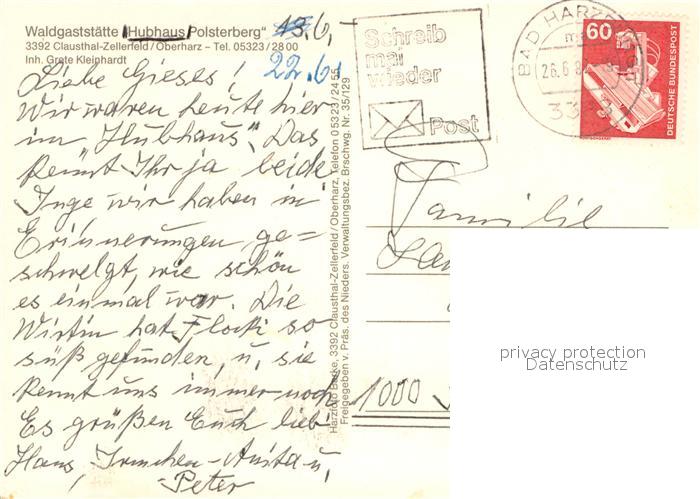 Waldgaststätte „Hubhaus Polsterberg“
3392 Clausthal-Zellerfeld/Oberharz – Tel. 05323/2800
Inh. Grete Kleinhardt
13.6,-
22.6.
Liebe Gieses,
Wir waren heute hier
im „Hubhaus“. Das
kennt Ihr ja beide
Inge wir haben in
Erinnerungen ge=
schwelgt, wie schön
es einmal war. Die
Wirtin hat Flocki so
süß gefunden, u, sie
kennt uns immer noch
Es grüßen Euch lieb
Hans, Irmchen-Anita u,
Peter
Harzfoto Barke, 3392 Clausthal-Zellerfeld/Oberharz, Telefon 05323/2455
Freigegeben v. Präs. des Nieders. Verwaltungsbez. Brschwg. Nr. 35/129
Schreib
mal
wieder
Post
BAD HARZ
26.6.8
33
60
DEUTSCHE BUNDESPOST
Familie
1000
privacy protection
Datenschutz